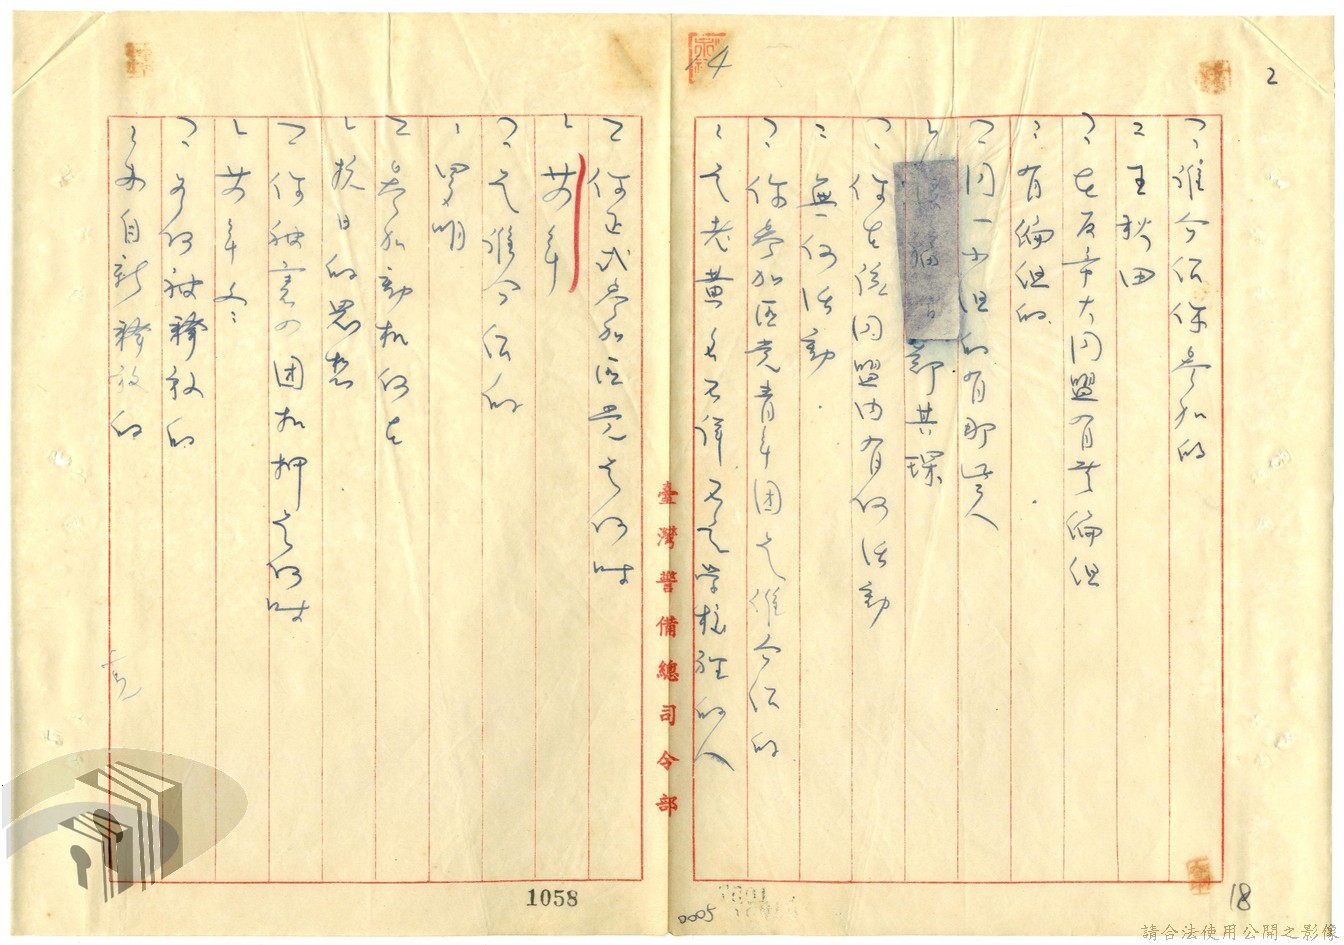 2
14
誰介紹你參加的
王秋田
在反帝大同盟有無編組
有編組的
同一小組的有那些人
鄭其琛
你在該同盟內有何活動
無何活動
你參加匪党青年団是誰介紹的
是老黃名不詳不是学校裡的人
臺灣警備總司令部
你正式參加匪党是何時
廿年
是誰介紹的
參加動机何在
抗日的思想
你被害の団扣押是何時
廿年冬
如何被釋放的
自新釋放的
1058
0005
18
請合法使用公開之影像